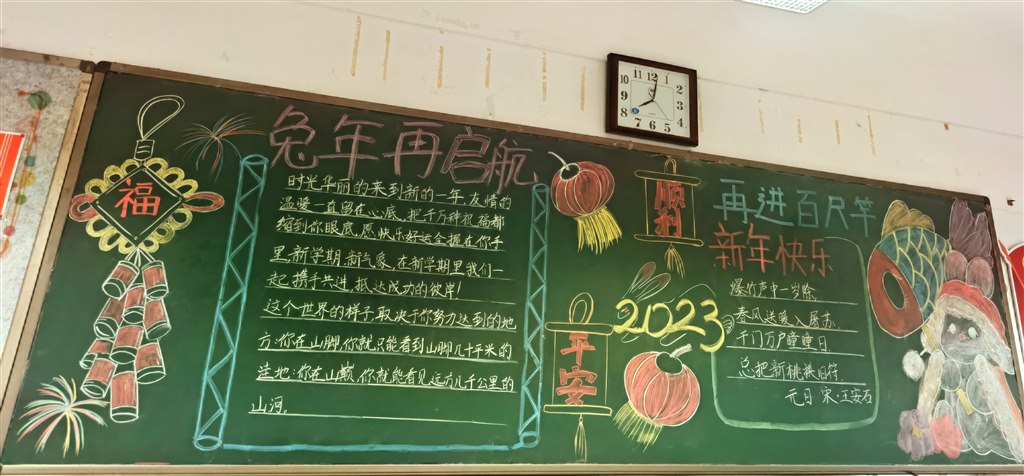 福
兔年再启航
时光华丽的来到新的一年,友情的
温暖一直留在心底,把千万种祝福都
缩到你眼底,愿快乐好运全握在你手
里,新学期,新气象,在新学期里我们一
起,携手共进,抵达成功的彼岸!
这个世界的样子取决于你努力达到的地
方,你在山脚,你就只能看到山脚几十平米的
洼地;你在山巅,你就能看见远方几千公里的
山河。
顺利
平安
2023
再进百尺竿
新年快乐
爆竹声中一岁除,
春风送暖入屠苏.
千门万户曈曈日
总把新桃换旧符
元日 宋·王安石
12
1
2
3
4
5
6
7
8
9
10
11